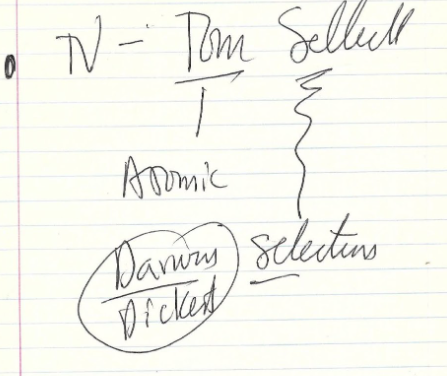 TV - Tom Selleck
Atomic
Darwins selections